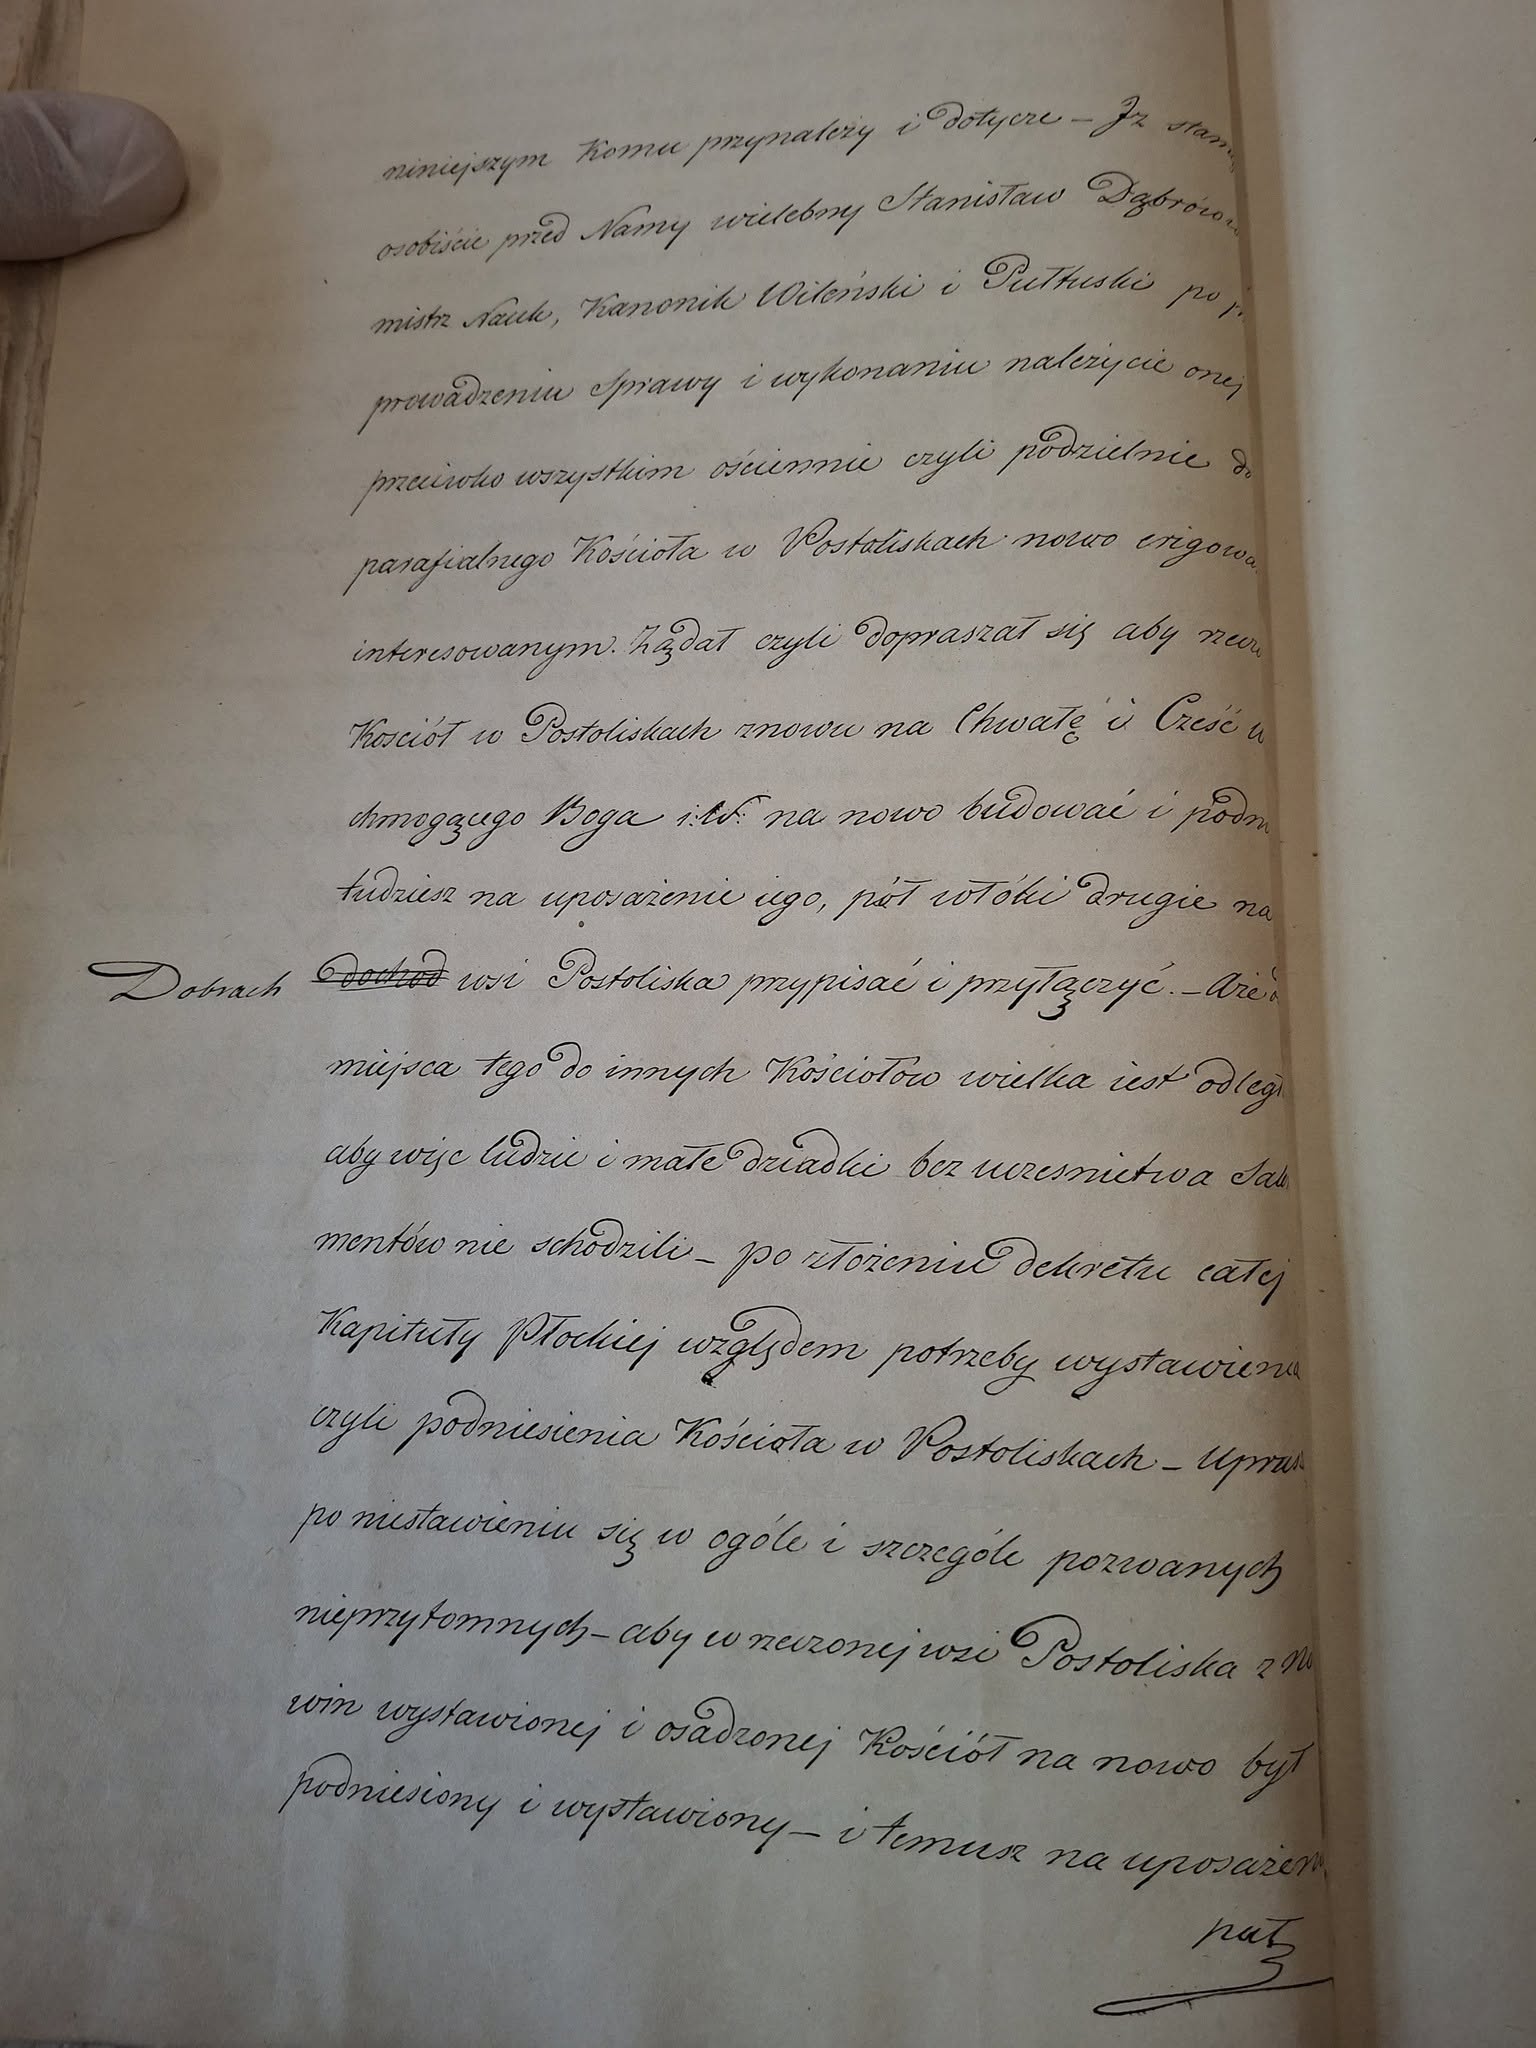 niniejszym Komu przynależy i dotycze – Iz stan
osobiście przed Namy wielebny Stanisław Dąbrów
mistrz Nauk, Kanonik Wileński i Pułtuski po p
prowadzeniu Sprawy i wykonaniu należycie onej
przeciwko wszystkim ościennie czyli podzielnie do
parafialnego Kościoła w Postoliskach nowo erigowa
interesowanym. Żądał czyli dopraszał się aby rzecz
Kosciół w Postoliskach znowu na Chwałę i Cześć w
chmogącego Boga i: na nowo budować i podn
tudziesz na uposażenie iego, pół włóki drugie na
Dobrach dochod wsi Postoliska przypisać i przyłączyć. – Aże
miejsca tego do innych Kościołów wielka iest odległ
aby więc ludzie i małe dziadki bez uczesnictwa Sak
mentów nie schodzili – po złożeniu dekretu całej
Kapituły Płockiej względem potrzeby wystawienia
czyli podniesienia Kościoła w Postoliskach – Upras
po niestawieniu się w ogóle i szczególe pozwanych
nieprzytomnych – aby w rzeczonej wsi Postoliska z no
win wystawionej i osadzonej Kościół na nowo był
podniesiony i wystawiony – i temusz na uposażen
puł